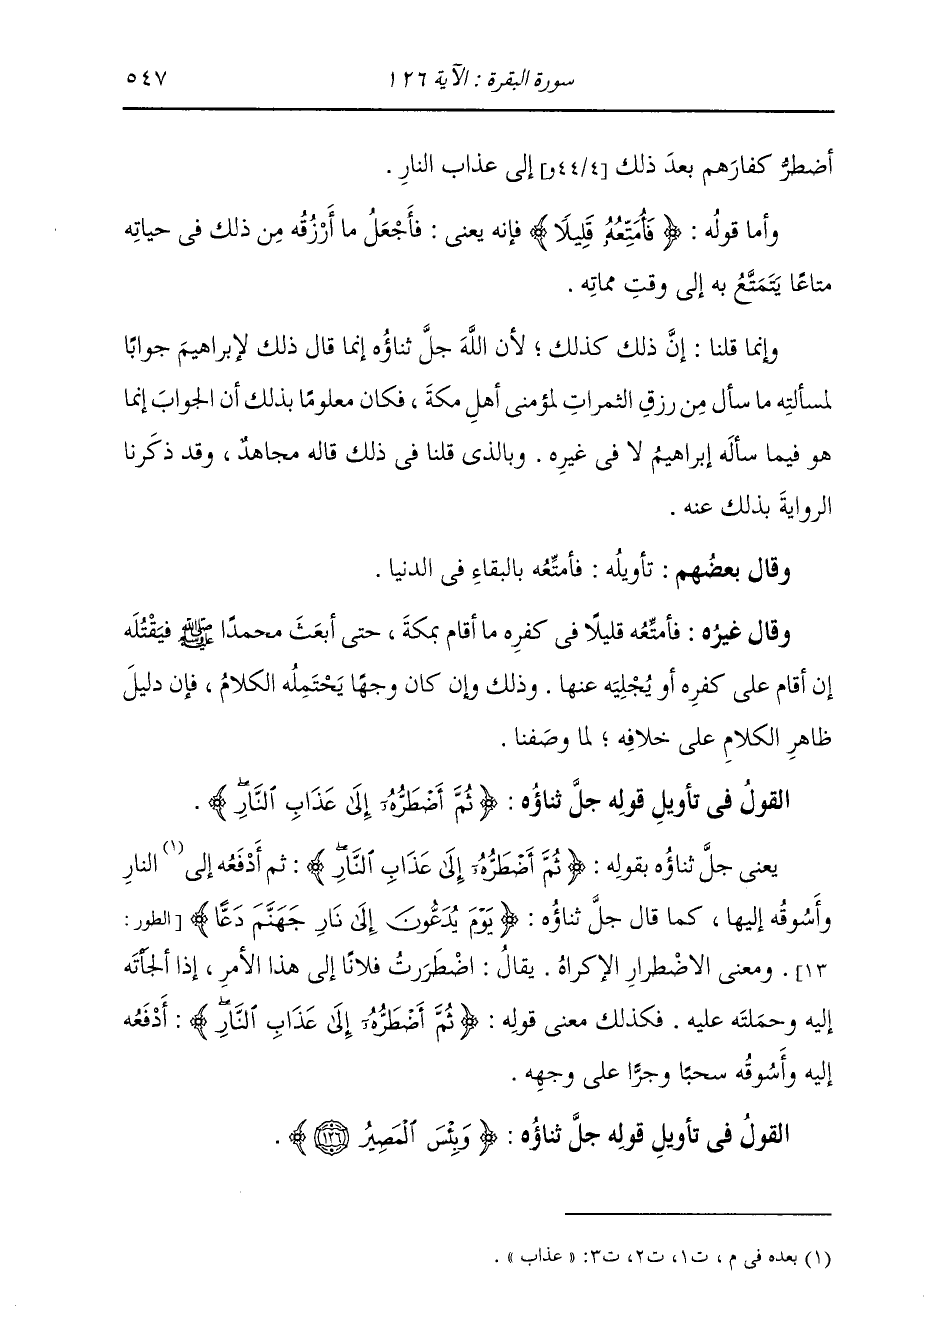 سورة البقرة : الآية ١٢٦ ٥٤٧
أضطرُّ كفارَهم بعدَ ذلك [٤٤/٤و] إلى عذابِ النارِ .
وأما قولُه : ﴿ فَأُمَتِّعُهُۥ قَلِيلًا ﴾ فإنه يعنى : فأَجْعَلُ ما أَرْزُقُه مِن ذلك فى حياتِه
متاعًا يَتَمَتَّعُ به إلى وقتِ مماتِه .
وإنما قلنا : إنَّ ذلك كذلك ؛ لأن اللَّهَ جلَّ ثناؤُه إنما قال ذلك لإبراهيمَ جوابًا
لمسألتِه ما سأل مِن رزقِ الثمراتِ لمؤمنى أهلِ مكةَ ، فكان معلومًا بذلك أن الجوابَ إنما
هو فيما سألَه إبراهيمُ لا فى غيرِه . وبالذى قلنا فى ذلك قاله مجاهدٌ ، وقد ذكَرنا
الروايةَ بذلك عنه .
وقال بعضُهم : تأويلُه : فأمتِّعُه بالبقاءِ فى الدنيا .
وقال غيرُه : فأمتِّعُه قليلًا فى كفرِه ما أقام بمكةَ ، حتى أبعَثَ محمدًا ﷺ فيَقْتُلَه
إن أقام على كفرِه أو يُجْلِيَه عنها . وذلك وإن كان وجهًا يَحْتَمِلُه الكلامُ ، فإن دليلَ
ظاهرِ الكلامِ على خلافِه ؛ لما وصَفنا .
القولُ فى تأويلِ قولِه جلَّ ثناؤُه : ﴿ ثُمَّ أَضْطَرُّهُۥٓ إِلَىٰ عَذَابِ ٱلنَّارِۖ ﴾ .
يعنى جلَّ ثناؤُه بقولِه : ﴿ ثُمَّ أَضْطَرُّهُۥٓ إِلَىٰ عَذَابِ ٱلنَّارِۖ ﴾ : ثم أَدْفَعُه إلى (١) النارِ
وأَسُوقُه إليها ، كما قال جلَّ ثناؤُه : ﴿ يَوْمَ يُدَعُّونَ إِلَىٰ نَارِ جَهَنَّمَ دَعًّا ﴾ [الطور :
١٣] . ومعنى الاضْطرارِ الإكراهُ . يقالُ : اضْطَرَرتُ فلانًا إلى هذا الأمرِ ، إذا ألجأتَه
إليه وحمَلتَه عليه . فكذلك معنى قولِه : ﴿ ثُمَّ أَضْطَرُّهُۥٓ إِلَىٰ عَذَابِ ٱلنَّارِۖ ﴾ : أَدْفَعُه
إليه وأَسُوقُه سحبًا وجرًّا على وجهِه .
القولُ فى تأويلِ قولِه جلَّ ثناؤُه : ﴿ وَبِئْسَ ٱلْمَصِيرُ ١٢٦ ﴾ .
(١) بعده فى م ، ت١، ت٢، ت٣: « عذاب » .